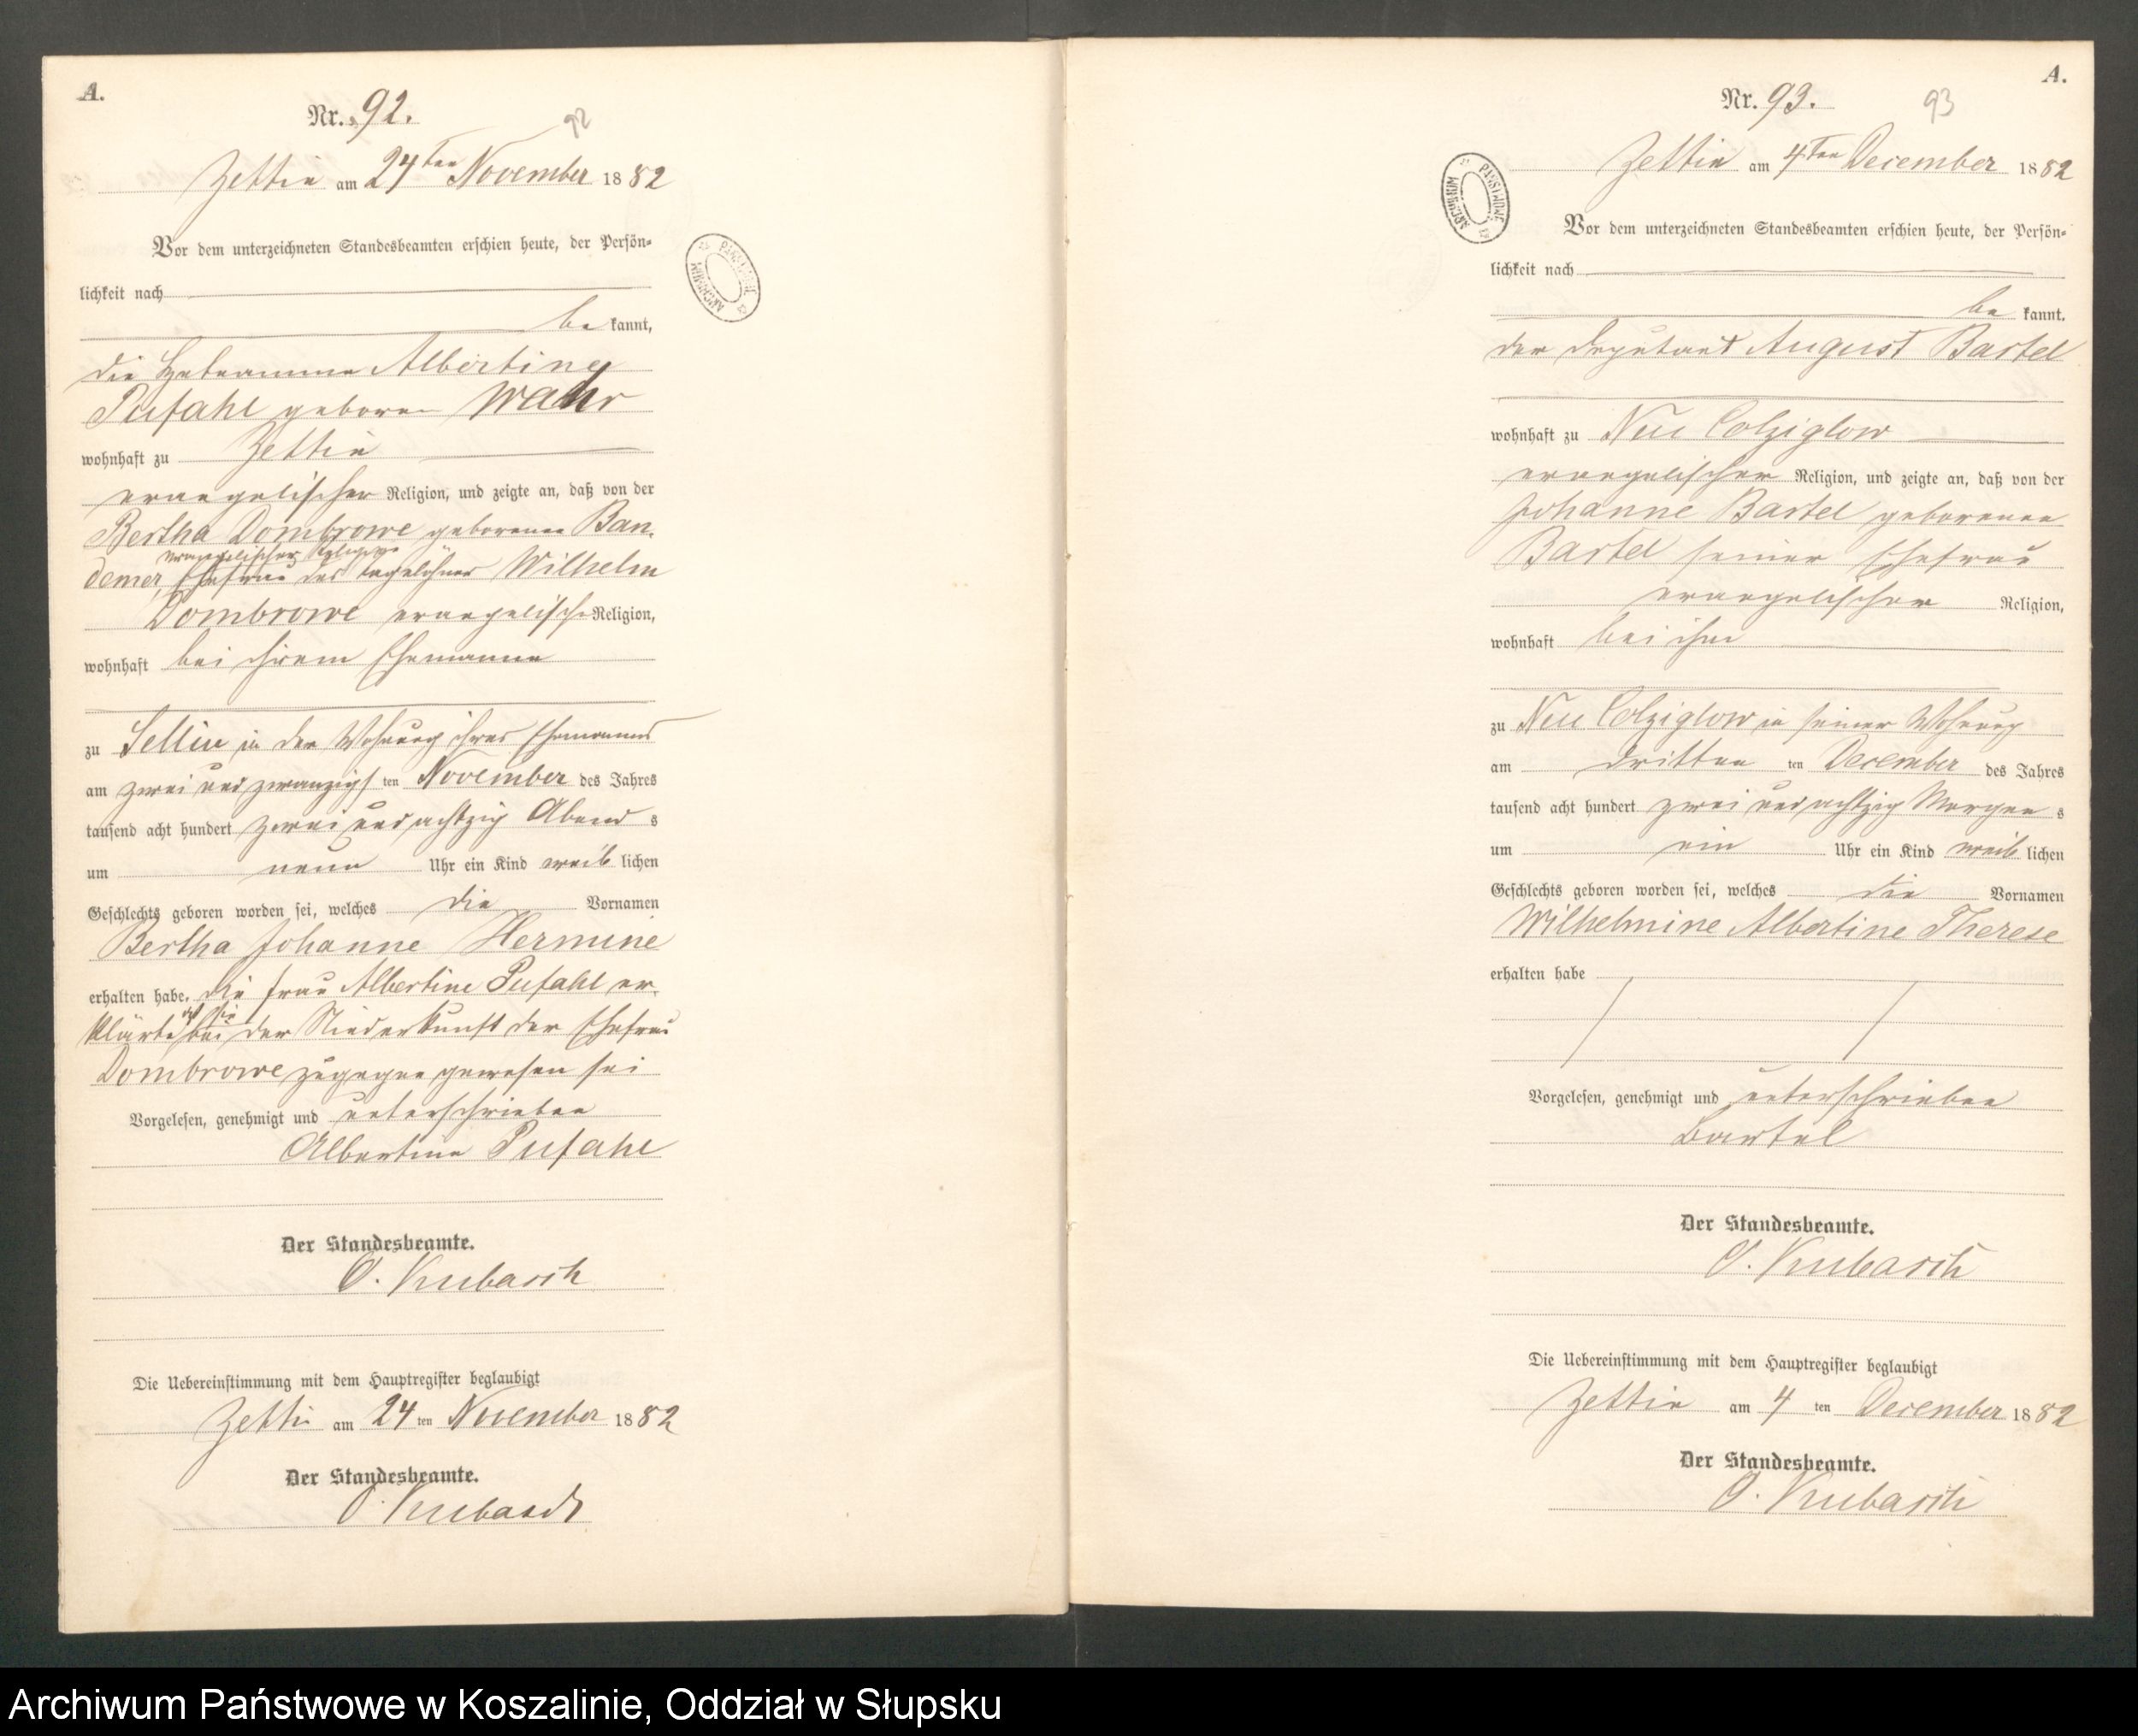 A.
Nr. 92.
92
Zettin am 24ten November 1882
Vor dem unterzeichneten Standesbeamten erschien heute, der Persön-
lichkeit nach
be kannt,
die Hebeamme Albertine
Pufahl geboren Wahr
wohnhaft zu Zettin
evangelischer Religion, und zeigte an, daß von der
Bertha Dombrowe geborenen Ban-
evangelischer Religion
demer, Ehefrau des Tagelöhner Wilhelm
Dombrowe evangelische Religion,
wohnhaft bei ihrem Ehemanne
zu Sellin in der Wohnung ihres Ehemannes
am zwei und zwanzigs ten November des Jahres
tausend acht hundert zwei und achtzig Abend s
um neun Uhr ein Kind weib lichen
Geschlechts geboren worden sei, welches die Vornamen
Bertha Johanne Hermine
erhalten habe. die Frau Albertine Pufahl er-
daß sie
klärte bei der Niederkunft der Ehefrau
Dombrowe zugegen gewesen sei
Vorgelesen, genehmigt und unterschrieben
Albertine Pufahl
Der Standesbeamte.
O. Kubasch
Die Uebereinstimmung mit dem Hauptregister beglaubigt
Zettin am 24 ten November 1882
Der Standesbeamte.
O. Kubasch
A.
Nr. 93.
93
Zettin am 4ten December 1882
ARCHIWUM PAŃSTWOWE
Vor dem unterzeichneten Standesbeamten erschien heute, der Persön-
lichkeit nach
be kannt,
der Deputant August Bartel
wohnhaft zu Neu Colziglow
evangelischer Religion, und zeigte an, daß von der
Johanne Bartel geborenen
Bartel seiner Ehefrau
evangelischer Religion,
wohnhaft bei ihm
zu Neu Colziglow in seiner Wohnung
am dritten ten December des Jahres
tausend acht hundert zwei und achtzig Morgen s
um ein Uhr ein Kind weib lichen
Geschlechts geboren worden sei, welches die Vornamen
Wilhelmine Albertine Therese
erhalten habe
Vorgelesen, genehmigt und unterschrieben
Bartel
Der Standesbeamte.
O. Kubasch
Die Uebereinstimmung mit dem Hauptregister beglaubigt
Zettin am 4 ten December 1882
Der Standesbeamte.
O. Kubasch
Archiwum Państwowe w Koszalinie, Oddział w Słupsku